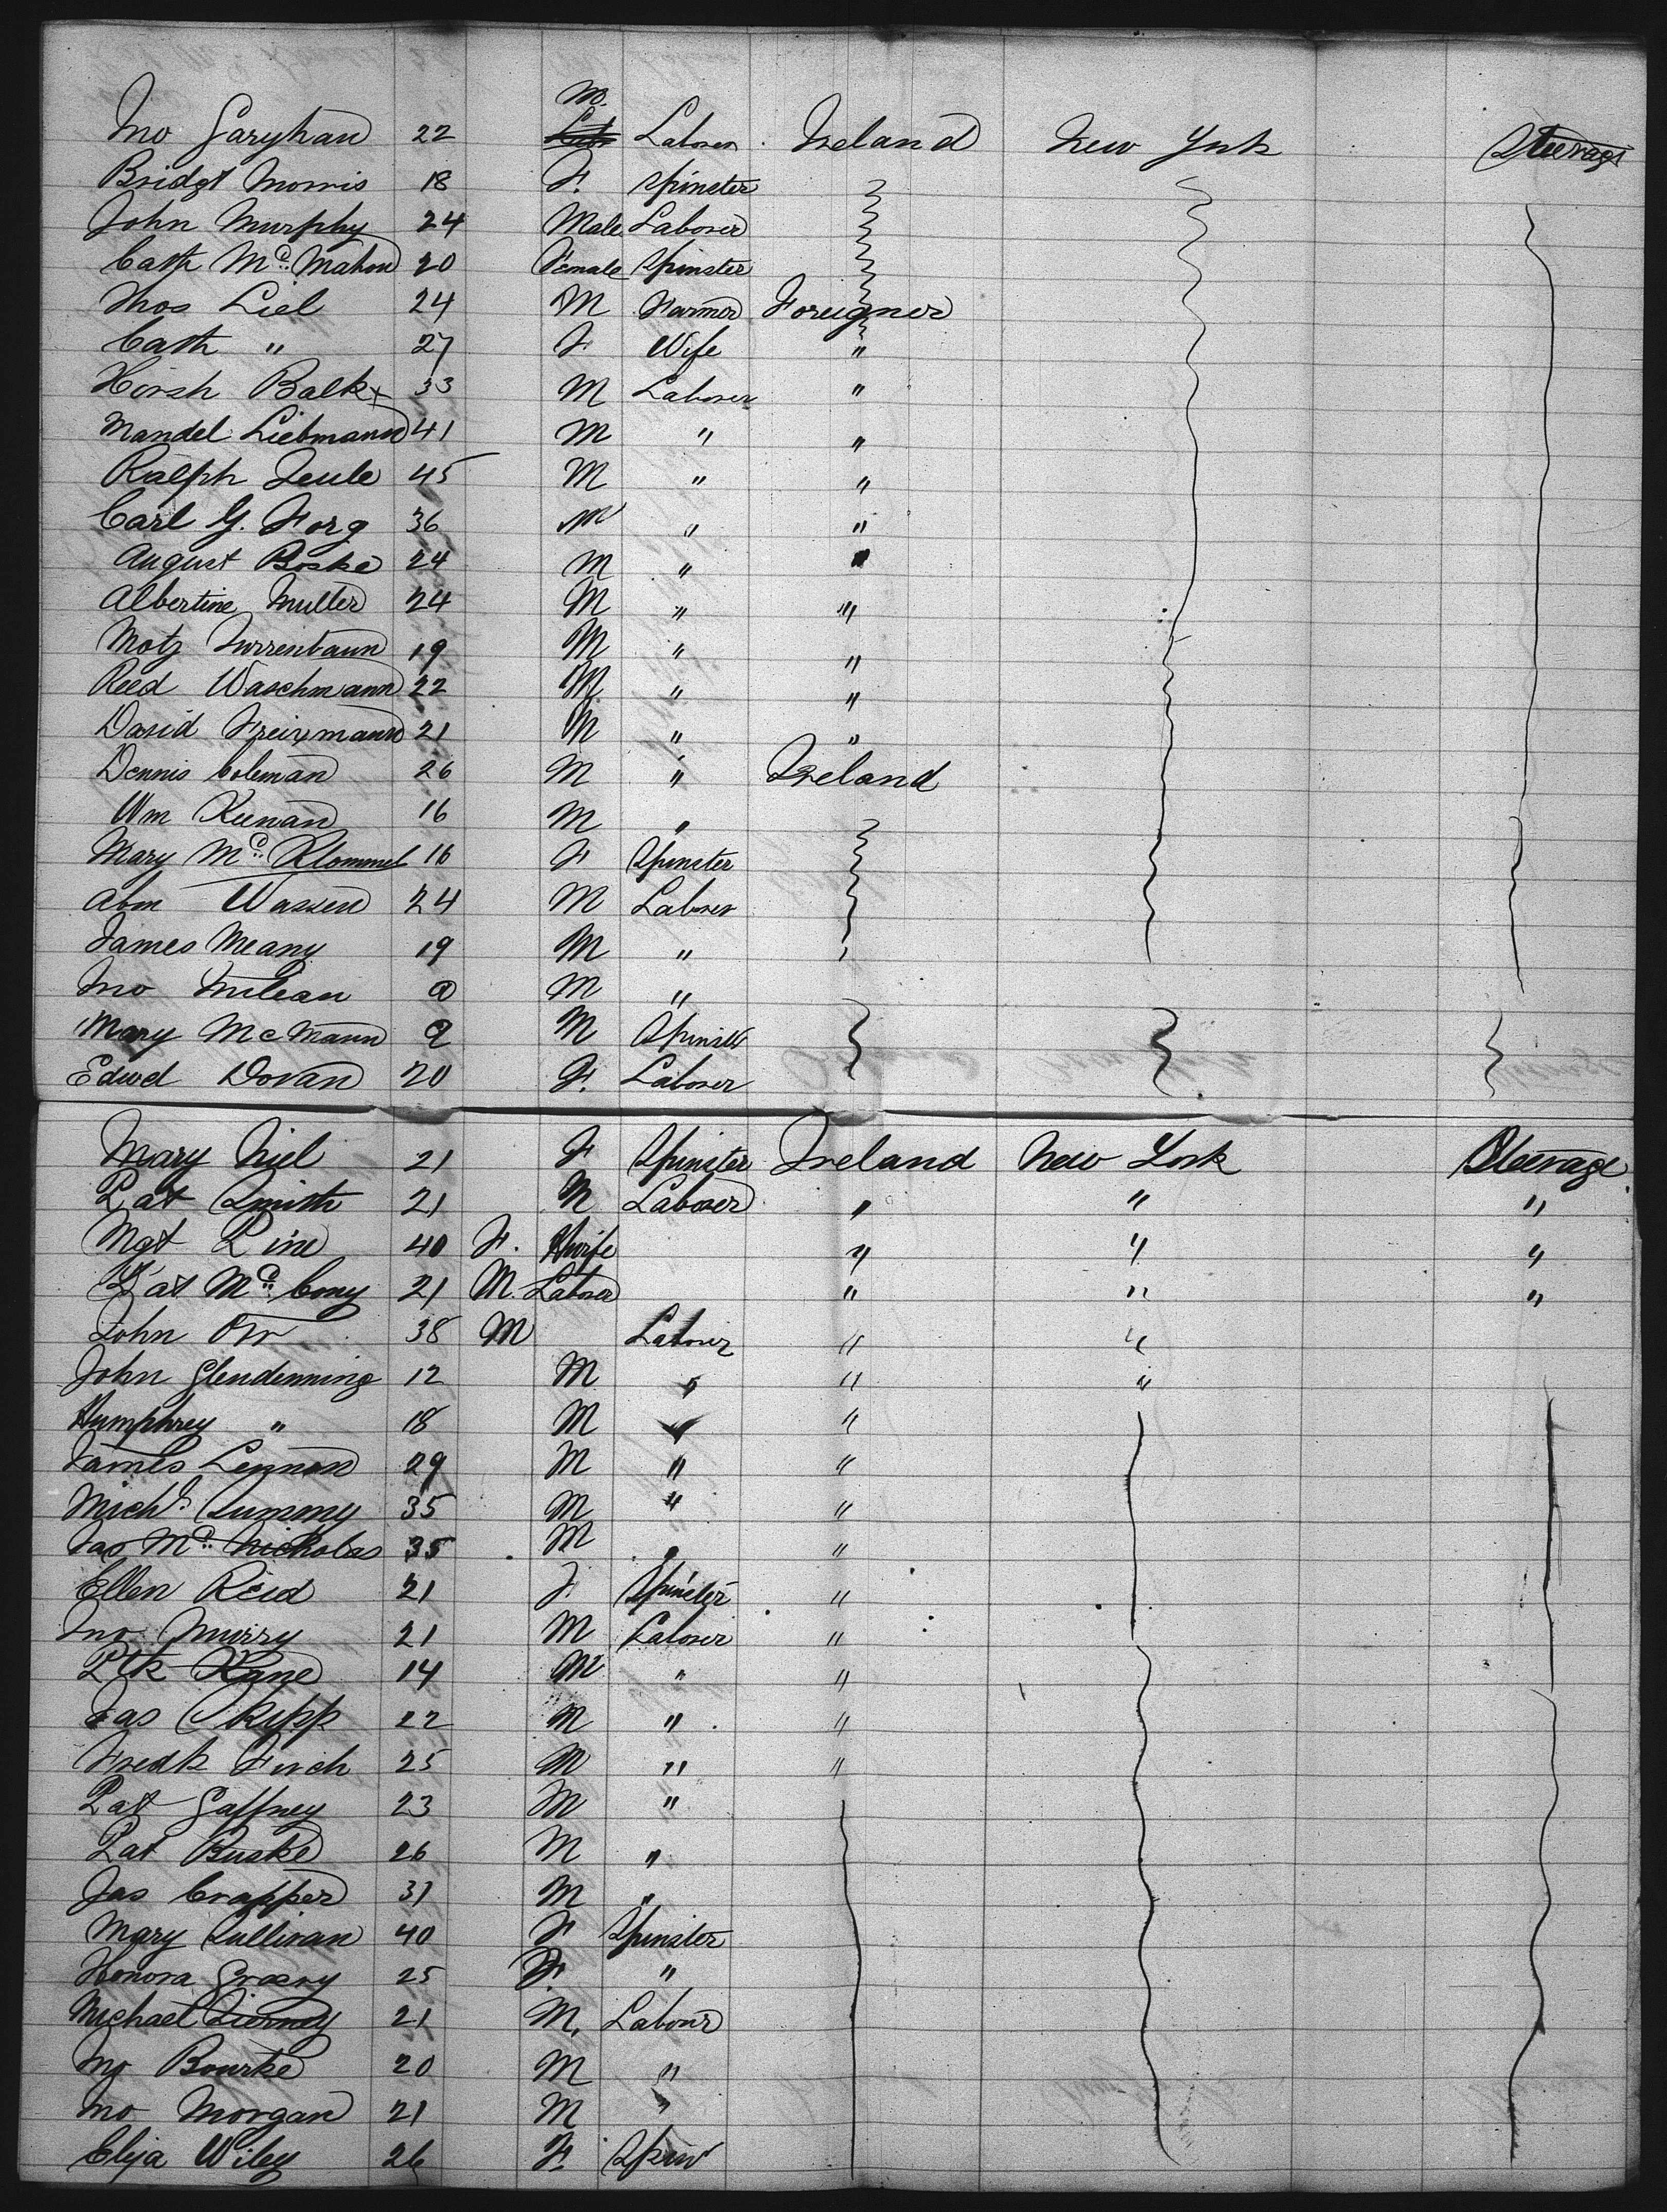 M.
Jno Garyhan 22 Laborer Ireland New York Steerage
Bridgt Morris 18 F. Spinster
John Murphy 24 Male Laborer
Cath Mc Mahon 20 Female Spinster
Thos Liel 24 M Farmer Foreigner
Cath " 27 F Wife "
Hirsh Balk 33 M Laborer "
Mandel Liebmann 41 M " "
Ralph Zeule 45 M " "
Carl G. Forg 36 M " "
August Boske 24 M " "
Albertine Muller 24 M " "
Motz 19 M " "
Reed Waschmann 22 M " "
David 21 M " "
Dennis Coleman 26 M " Ireland
Wm Keenan 16 M "
Mary Mc 16 F Spinster
Abm Wassen 24 M Laborer
James Meany 19 M "
Jno M "
Mary McMann M Spinster
Edwd Dovan 20 F. Laborer
Mary Niel 21 F Spinster Ireland New York Steerage
Pat Smith 21 M Laborer " " "
Mgt Pine 40 F. Hwife " " "
Pat Mc Cony 21 M. Laborer " " "
John Orr 38 M Laborer " "
John Glendenning 12 M " " "
Humphrey " 18 M " "
James Lennon 29 M " "
Michl. Summy 35 M " "
Jas Mc Nickolas 35 M " "
Ellen Reid 21 F Spinster "
Jno Murry 21 M Laborer "
Ptk Kane 14 M " "
Jas Skipp 22 M " "
Fredk Firch 25 M " "
Pat Gaffney 23 M "
Pat Buske 26 M "
Jas Crapper 31 M "
Mary Sullivan 40 F Spinster
Honora 25 F. "
Michael Tierney 21 M. Labour
Jno Bourke 20 M "
Jno Morgan 21 M "
Eliza Wiley 26 F. Spin